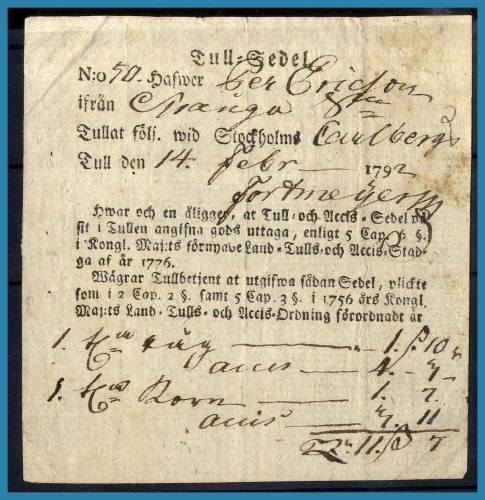 Tull-Sedel.
N:o 50. Hafwer Per Ericson
ifrån
Tullat följ. wid Stockholms Carlbergs
Tull den 14. Febr 1792
Hwar och en åligger, at Tull- och Accis-Sedel på
sit i Tullen angifna gods uttaga, enligt 5 Cap. 6 §.
i Kongl. Maj:ts förnyade Land-Tulls-och Accis-Stad-
ga af år 1776.
Wägrar Tullbetjent at utgifwa sådan Sedel, plickte
som i 2 Cap. 2 §. samt 5 Cap. 3 §. i 1756 års Kongl.
Maj:ts Land-Tulls- och Accis-Ordning förordnadt är
1. råg 1. ß 10
accis 4.
1. Korn 1. 7
accis 11
11. ß 7